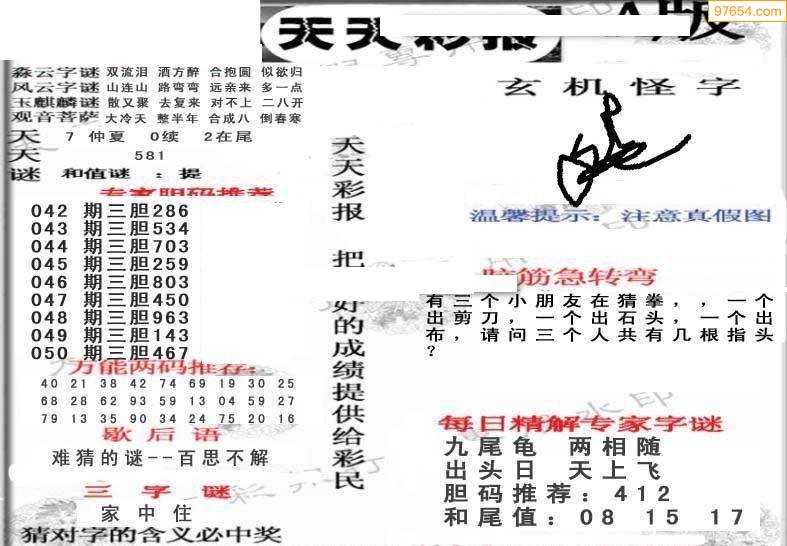 97654.com
天天彩报
A版
森云字谜 双流泪 酒方醉 合抱圆 似欲归
风云字谜 山连山 路弯弯 远亲来 多一点
玉麒麟谜 散又聚 去复来 对不上 二八开
观音菩萨 大冷天 整半年 合成八 倒春寒
天 7 仲夏 0续 2在尾
天 581
谜 和值谜 :提
专家胆码推荐
042 期三胆286
043 期三胆534
044 期三胆703
045 期三胆259
046 期三胆803
047 期三胆450
048 期三胆963
049 期三胆143
050 期三胆467
万能两码推荐:
40 21 38 42 74 69 19 30 25
68 28 62 93 59 13 04 59 27
79 13 35 90 34 24 75 20 16
歇后语
难猜的谜--百思不解
三字谜
家中住
猜对字的含义必中奖
天天彩报 把好的成绩提供给彩民
玄机怪字
温馨提示: 注意真假图
脑筋急转弯
有三个小朋友在猜拳,,一个
出剪刀,一个出石头,一个出
布,请问三个人共有几根指头
?
每日精解专家字谜
九尾龟 两相随
出头日 天上飞
胆码推荐:412
和尾值:08 15 17